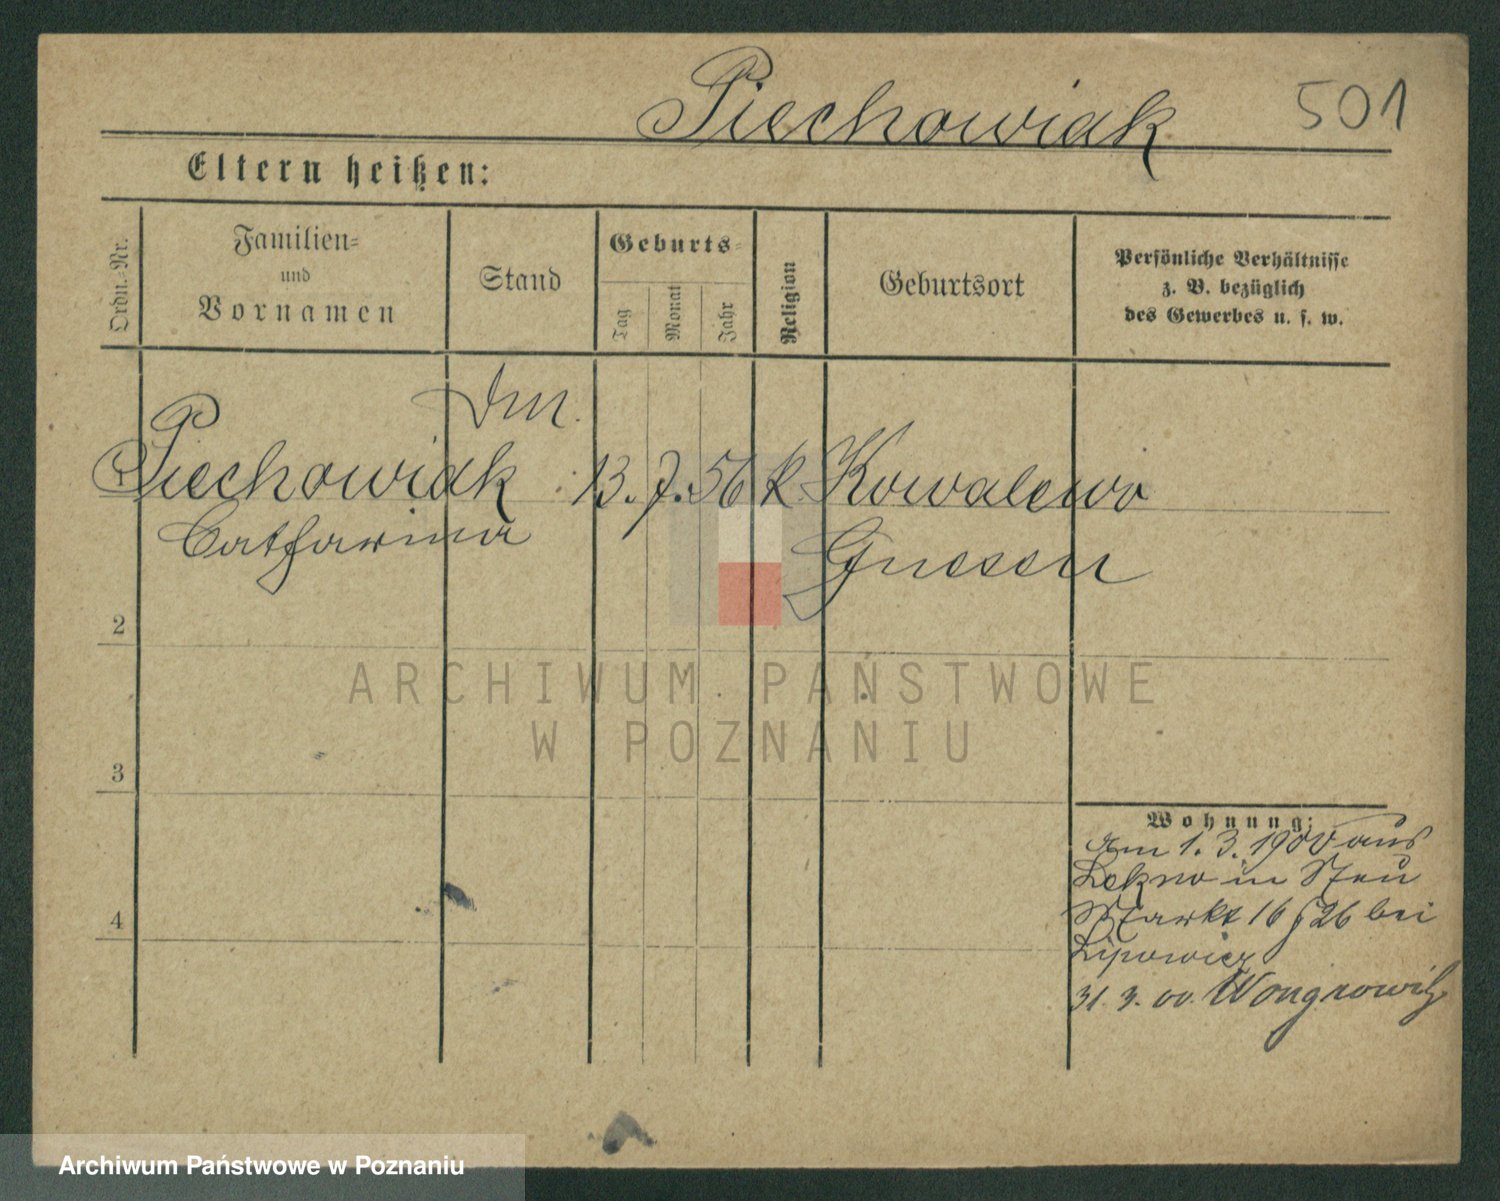 Piechowiak
501
Eltern heißen:
Ordn.-Nr.
Familien-
und
Vornamen
Stand
Geburts-
Tag
Monat
Jahr
Religion
Geburtsort
Persönliche Verhältnisse
z. B. bezüglich
des Gewerbes u. s. w.
1 Piechowiak 13. 7. 56 k Kowalewo
Catharina Gnesen
2
3
4
Wohnung:
am 1. 3. 1900 aus
Lekno in Neu
Markt 16 bei
Lipowicz
31. 3. 00. Wongrowitz
ARCHIWUM PAŃSTWOWE
W POZNANIU
Archiwum Państwowe w Poznaniu